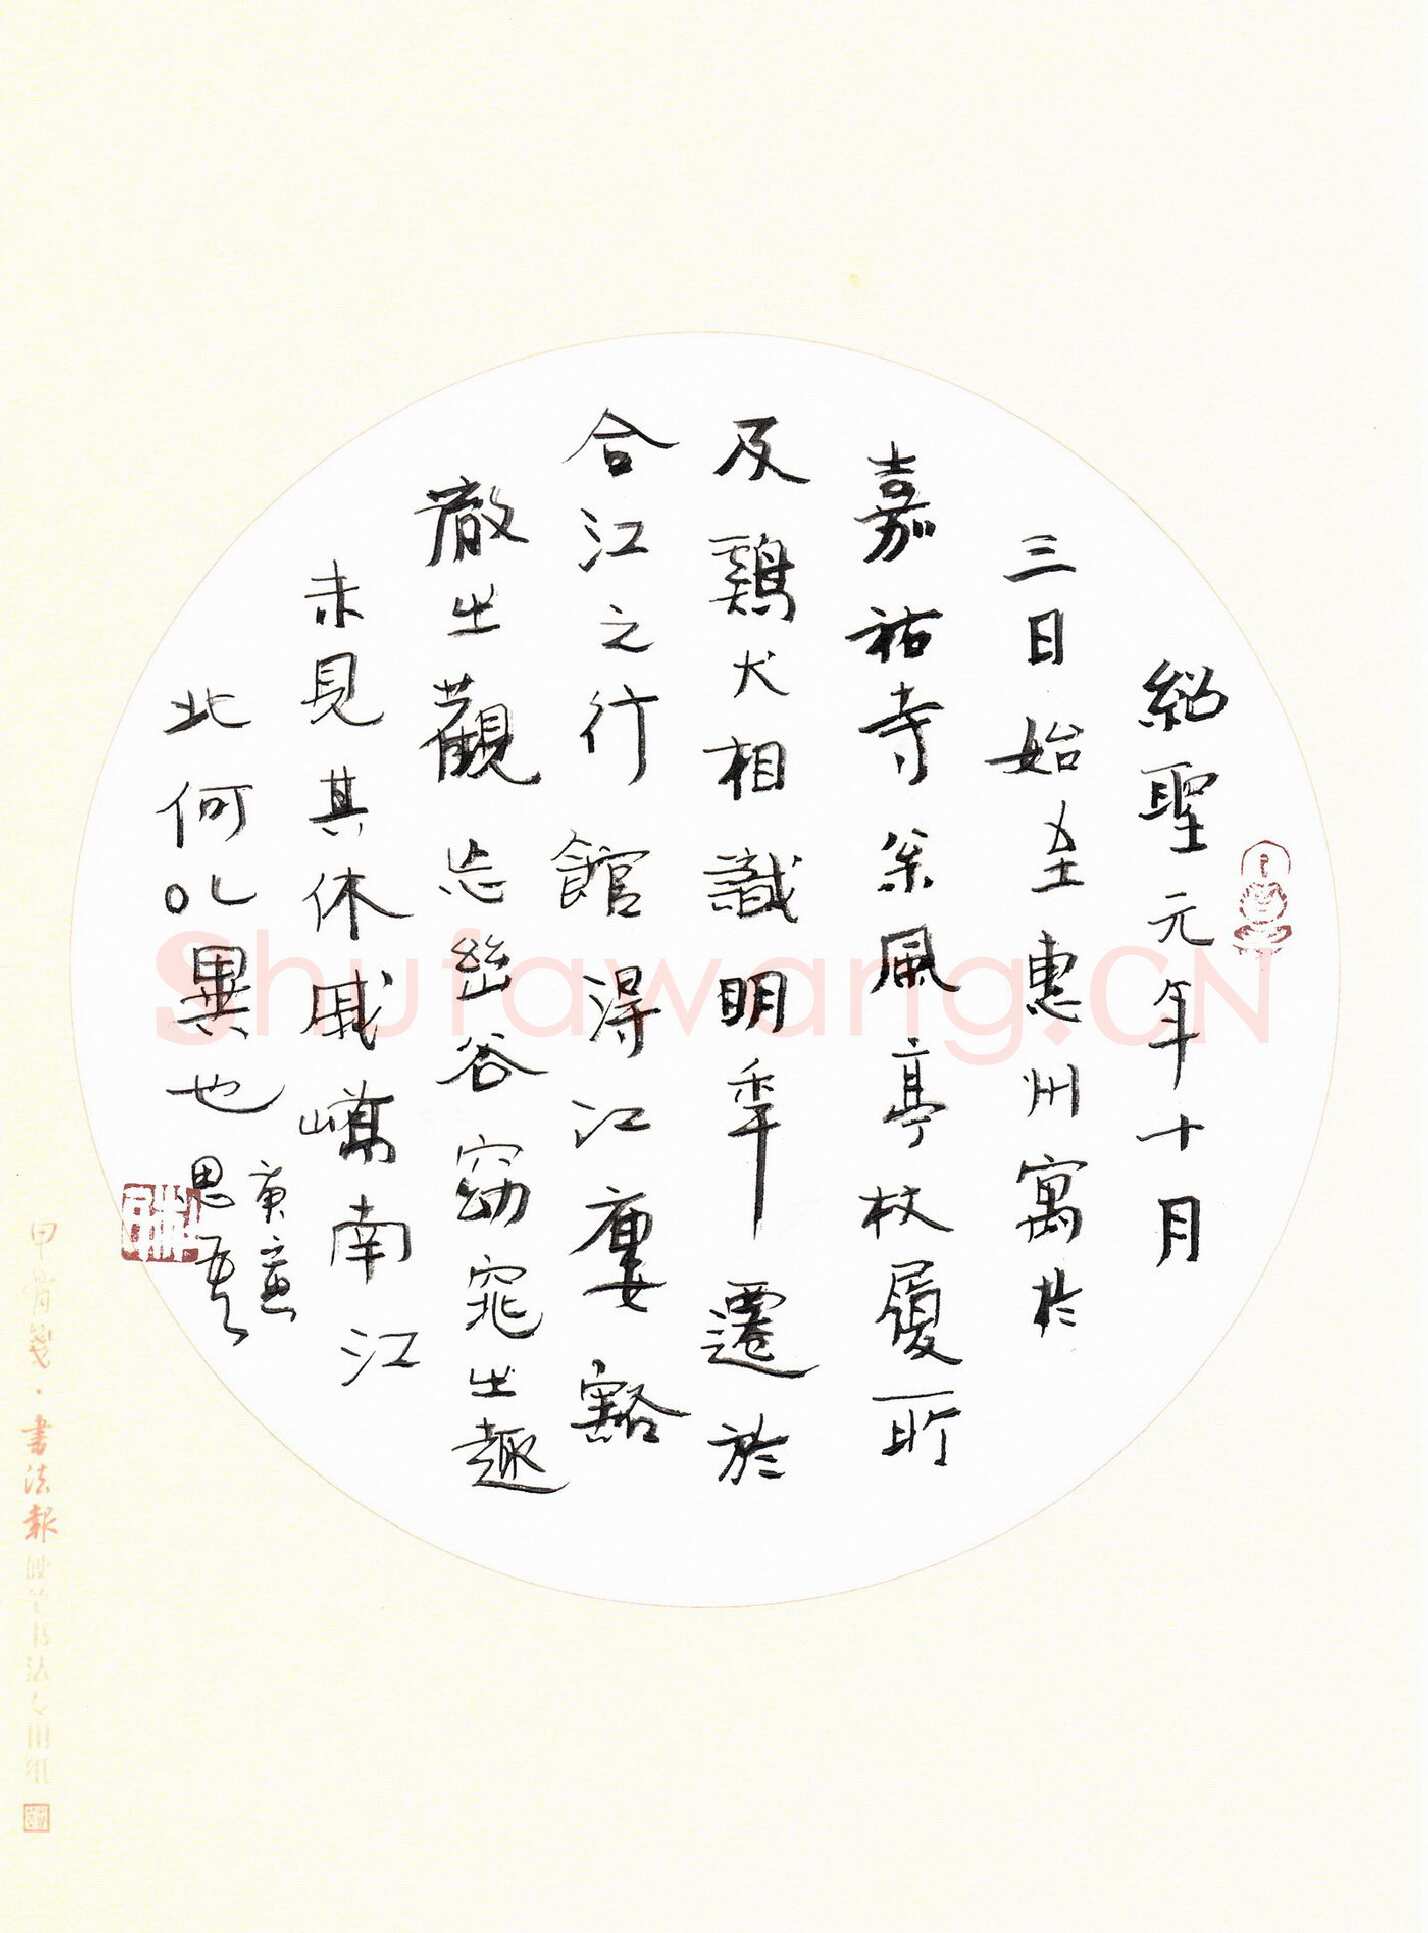 紹聖元年十月
三日始至惠州寓於
嘉祐寺松風亭杖履所
及鷄犬相識明年遷於
合江之行館得江樓豁
徹之觀忘幽谷窈窕之趣
未見其休戚嶠南江
北何以異也
庚
思吾
甲骨箋·書法報
Shufawang.CN